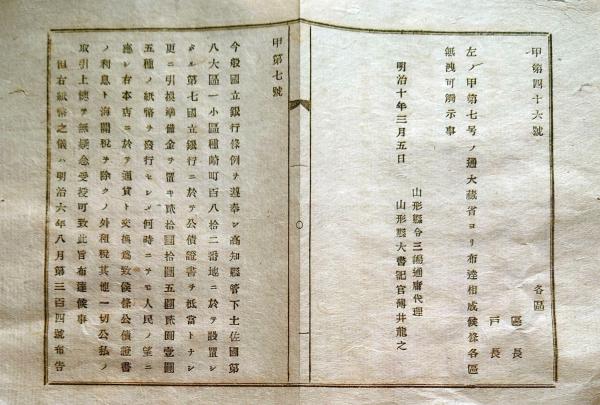 甲第四十六號
各區
區長
戸長
左ノ甲第七号ノ通大藏省ヨリ布達相成候條各區
無洩可觸示事
明治十年三月五日
山形縣令三島通庸代理
山形縣大書記官薄井龍之
甲第七號
今般國立銀行條例ヲ遵奉シ高知縣管下土佐國第
八大區一小區種崎町百八拾二番地ニ於テ設置シ
タル第七國立銀行ニ於テ公債證書ヲ抵當トナシ
更ニ引換準備金ヲ置キ貳拾圓拾圓五圓貳圓壹圓
五種ノ紙幣ヲ發行セシメ何時ニテモ人民ノ望ニ
應シ右本店ニ於テ通貨ト交換爲致候條公債證書
ノ利息ト海關税ヲ除クノ外租税其他一切公私ノ
取引上總テ無疑念受授可致此旨布達候事
但右紙幣之儀ハ明治六年八月第三百四號布告